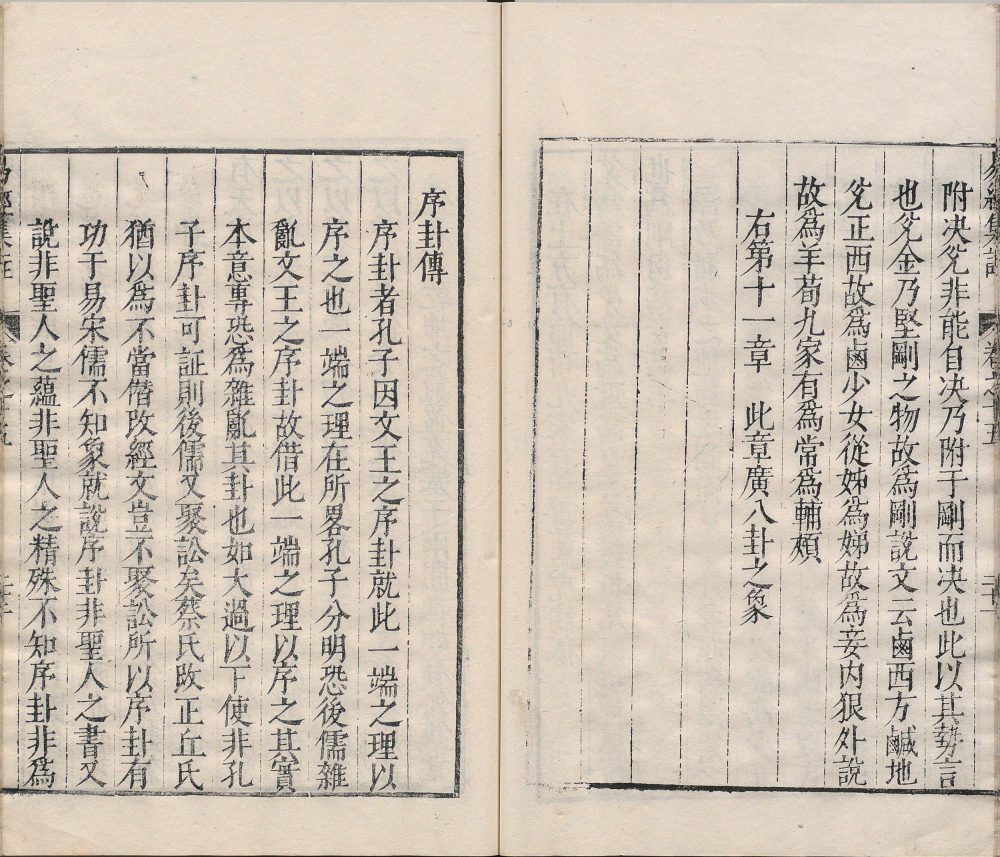 易經集註
卷之十五
附决兊非能自决乃附于剛而决也此以其勢言
也兊金乃堅剛之物故爲剛說文云鹵西方鹹地
兊正西故爲鹵少女從姊爲娣故爲妾内狠外說
故爲羊荀九家有爲常爲輔頰
右第十一章 此章廣八卦之象
序卦傳
序卦者孔子因文王之序卦就此一端之理以
序之也一端之理在所畧孔子分明恐後儒雜
亂文王之序卦故借此一端之理以序之其實
本意專恐爲雜亂其卦也如大過以下使非孔
子序卦可証則後儒又聚訟矣蔡氏改正丘氏
猶以爲不當僭改經文豈不聚訟所以序卦有
功于易宋儒不知象就說序卦非聖人之書又
說非聖人之蘊非聖人之精殊不知序卦非爲
易經集註